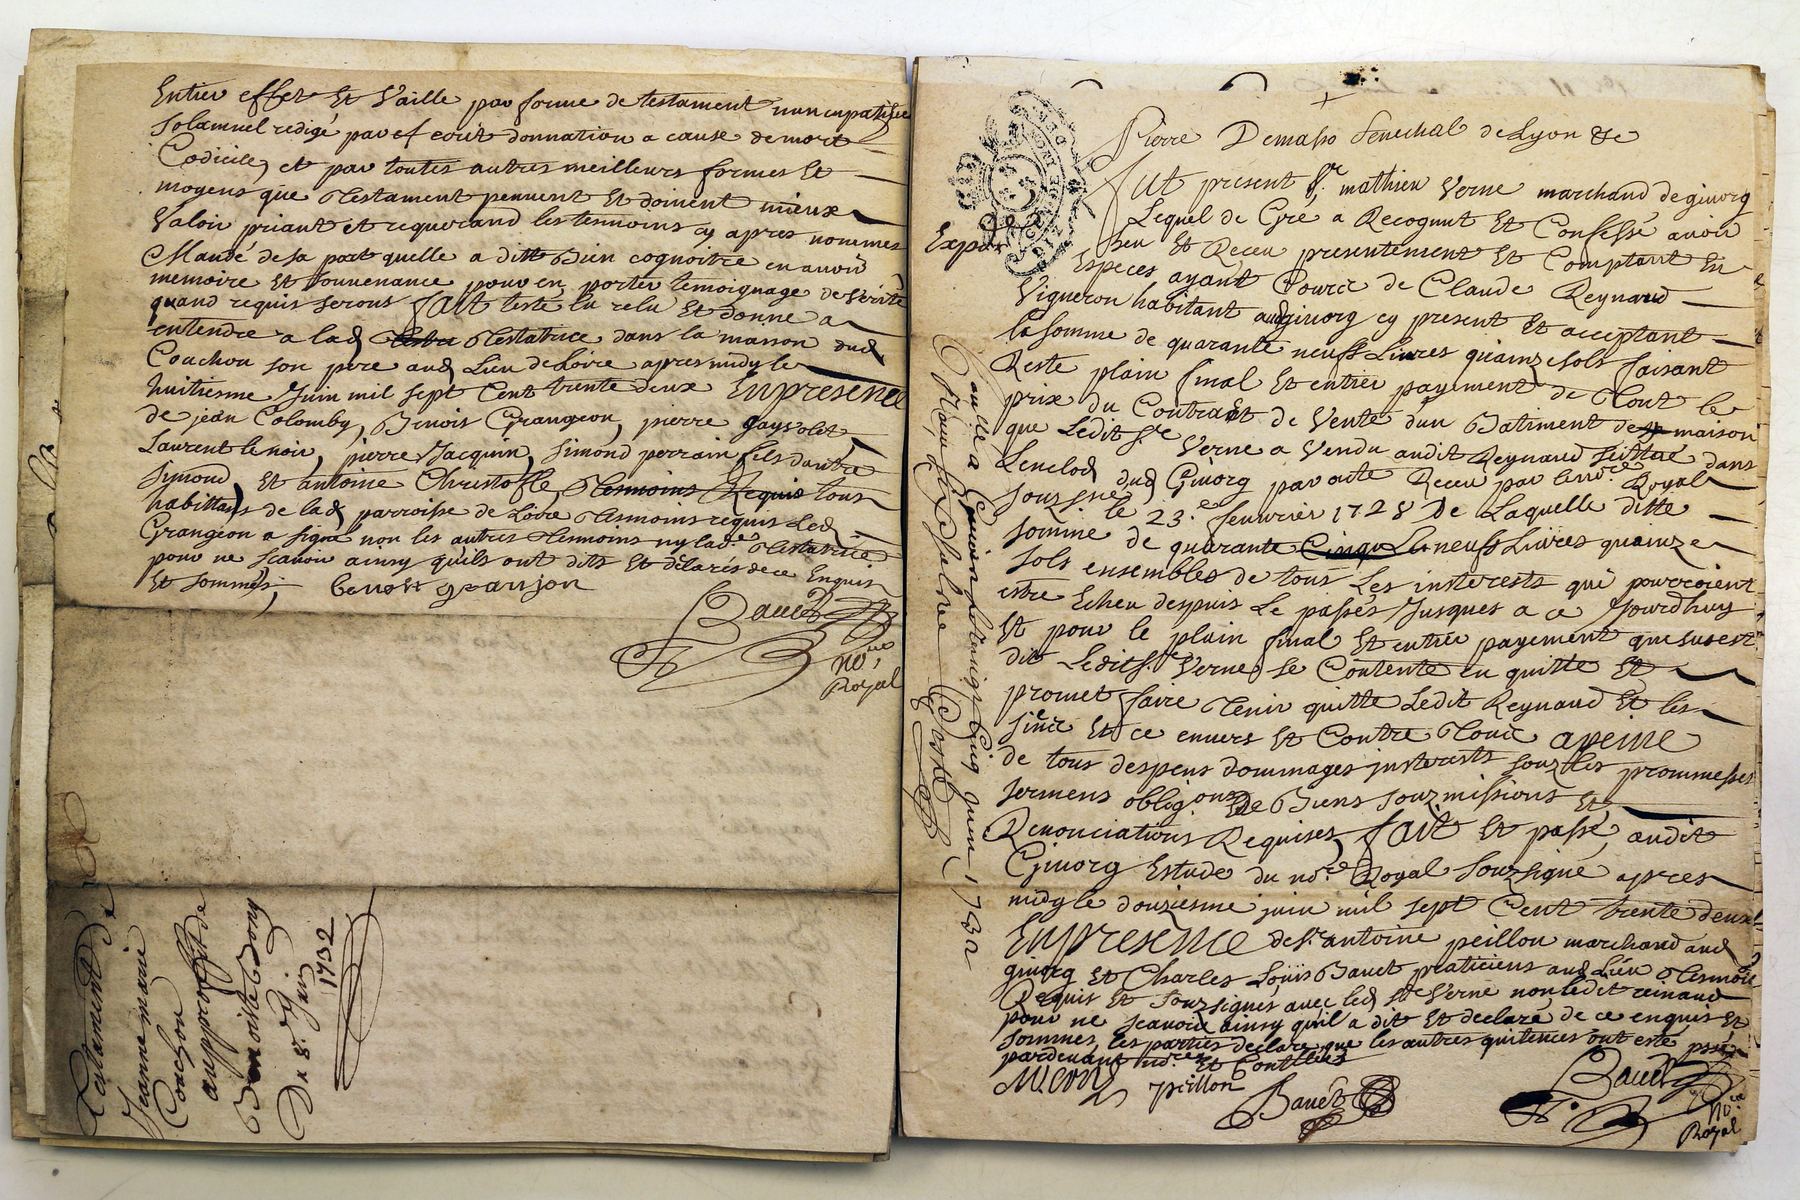 Entier effet Et Vaille par forme de testament nuncupatif
Solamnel redigé par ecrit donnation a cause de mort
Codicile, et par toutes autres meilleurs formes Et
moyens que Testament peuuent Et doiuent mieux
Valoir priant et requerand les tesmoins cy apres nommes
Mandé de sa part quelle a ditt Bien cognoitre en auoir
memoire Et souuenance pour en porter temoignage de verité
quand requis seront fait testé lu relu Et donné a
entendre a lad Testatrice dans la maison dud
Coachon son pere aud Lieu de Loire apres midy le
huitiesme Juin mil sept Cent trente deux En presence
de jean Colomby, Benois Grangeon, pierre gayvolet
Laurent lenoir, pierre Jacquin, Simond perrain fils dautre
Symond, Et antoine Christofle, Tesmoins Requis tous
habittans de lad parroisse de Loire Tesmoins requis Led
Grangeon a signé non les autres Tesmoins ny lad.e Testatrice
pour ne scauoir ainsy quils ont dits Et declarés de ce Enquis
Et sommés, benoit granjon
Bauet
no.re
Royal
Testament de
Jeanne marie
Coachon
aupproffit de
Benoiste
Du 8.e Juin
1732
Pierre Demasso Senechal de Lyon &c
fut present S.r mathieu Verne marchand de giuorg
Lequel de Gre a Recognut Et Confessé auoir
heu Et Receu presentement Et Comptant En
Especes ayant Cource de Claude Reynaud
Vigneron habitant aud giuorg cy present Et acceptant
la somme de quarante neuff Liures quainze sols faisant
Reste plain final Et entier payement de Tout le
prix du Contract de Vente dun Batiment de maison
que Ledit S.r Verne a Vendu audit Reynaud scittué dans
Lenclod dud Giuorg par acte Receu par le no.re Royal
souzsigne le 23.e feuurier 1728 De Laquelle ditte
somme de quarante Cinqu Le neuff Liures quainze
sols ensembles de tous Les insterests qui pourroient
estre Echeu despuis Le passés Jusques a ce Jourdhuy
Et pour le plain final Et entier payement que sus est
dit Ledit S.r Verne se Contente en quitte Et
promet faire Tenir quitte Ledit Reynaud Et les
siens Et ce enuers Et Contre Tous apeine
de tous despens dommages insterests souz les prommesses
sermens obligons De Biens souzmissions Et
Renonciations Requises, fait Et passé audit
Giuorg Estude du no.re Royal souzsigné apres
midy le douziesme juin mil sept Cent trente deux
En presence de S.r antoine peillon marchand aud
giuorg Et Charles Loüis Bauet praticiens aud Lieu Tesmoins
Requis Et souzsignés auec led S.r Verne non ledit reinaud
pour ne scauoir ainsy quil a dit Et declaré de ce enquis Et
sommés, les parties declare que les autres quitences ont esté
pardeuant no.res Et Conttées
M Verne peillon
Bauet
Bauet
no.re
Royal
Expié
1732